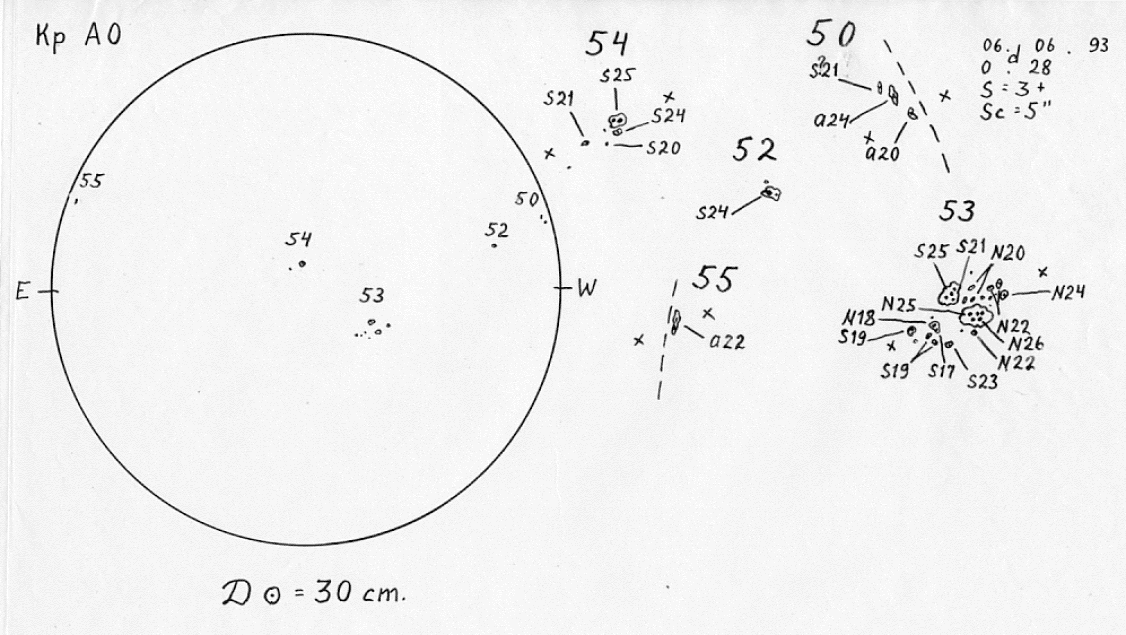 Kp A0
55
50
52
54
53
E
W
D ⊙ = 30 cm.
54
S25
S21
S24
S20
52
S24
55
a22
50
S?21
a24
a20
06. d 06 . 93
0 . 28
S = 3+
Sc = 5"
53
S25 S21 N20
N24
N25
N18
S19
N22
N26
N22
S19 S17 S23